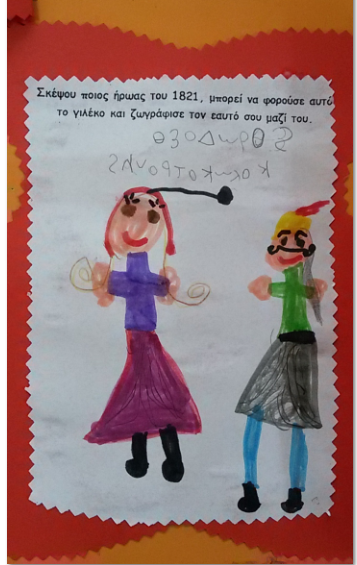 Σκέψου ποιος ήρωας του 1821, μπορεί να φορούσε αυτό
το γιλέκο και ζωγράφισε τον εαυτό σου μαζί του.